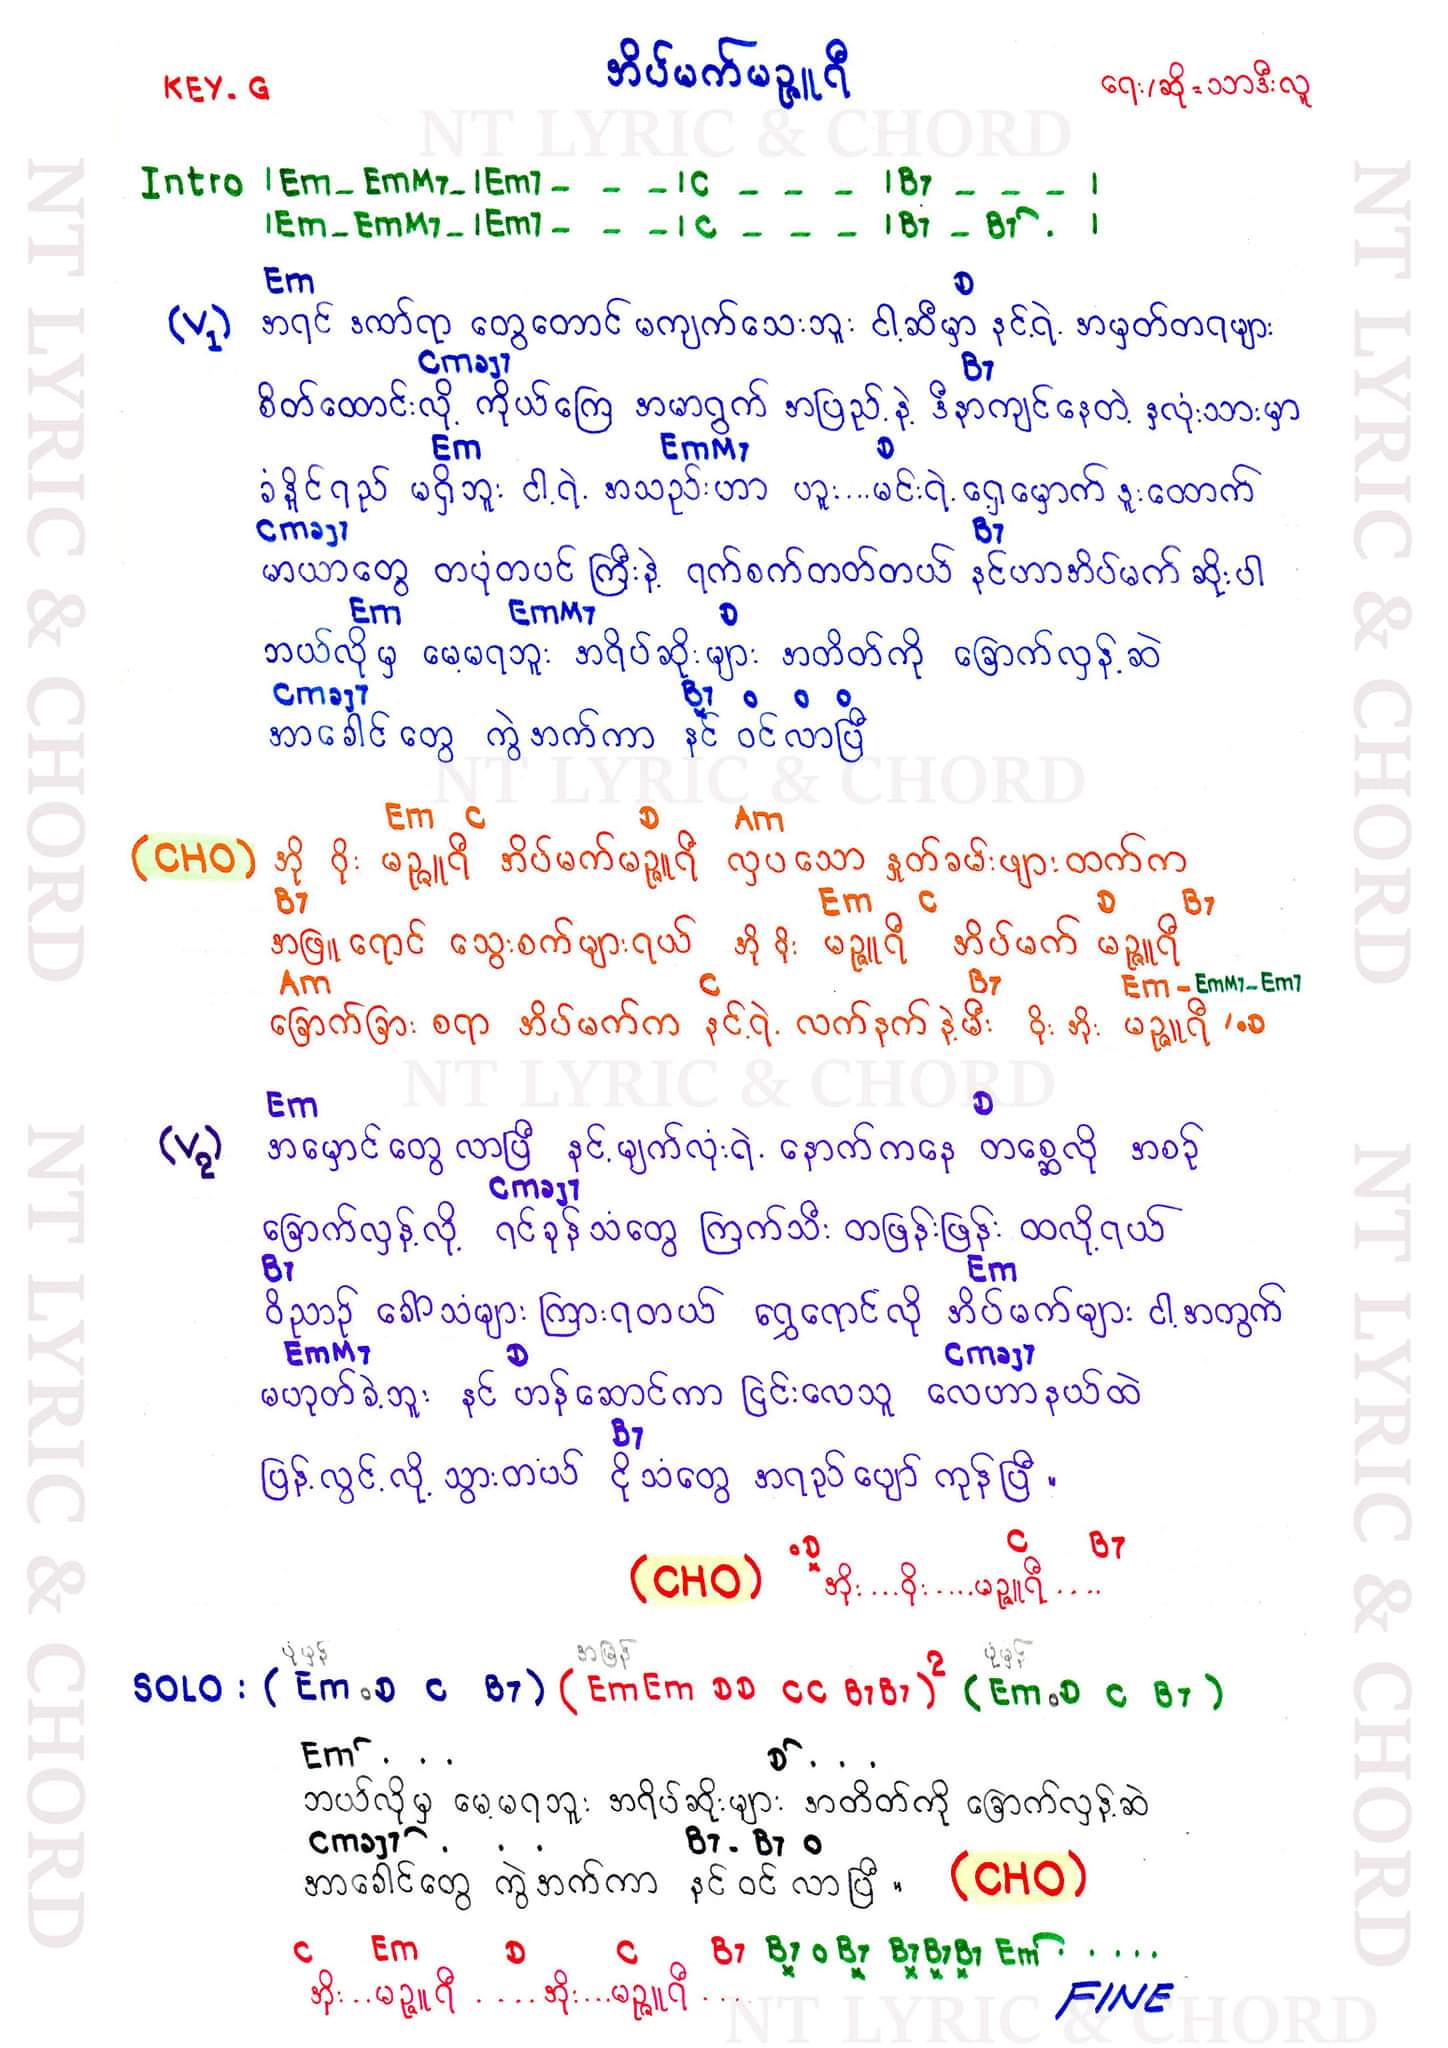 KEY. G
အိပ်မက်မဉ္ဇူရီ
ရေး/ဆို = သာဒီးလူ
NT LYRIC & CHORD
Intro |Em _ EmM7 _ |Em7 _ _ _ _ | C _ _ _ |B7 _ _ _ |
|Em _ EmM7 _ |Em7 _ _ _ _ | C _ _ _ |B7 _ B7 . |
Em D
(V1) အရင် ဒဏ်ရာ တွေတောင် မကျက်သေးဘူး ငါ့ဆီမှာ နင့်ရဲ့ အမှတ်တရများ
Cmaj7 B7
စိတ်ထောင်းလို့ ကိုယ်ကြေ အမာရွက် အပြည့်နဲ့ ဒီနာကျင်နေတဲ့ နှလုံးသားမှာ
Em EmM7 D
ခံနိုင်ရည် မရှိဘူး ငါ့ရဲ့ အသည်းဟာ ဟူး...မင်းရဲ့ ရှေ့မှောက် ဒူးထောက်
Cmaj7 B7
မာယာတွေ တပုံတပင် ကြီးနဲ့ ရက်စက်တတ်တယ် နင်ဟာအိပ်မက် ဆိုးပါ
Em EmM7 D
ဘယ်လိုမှ မေ့မရဘူး အရိပ်ဆိုးများ အတိတ်ကို ခြောက်လှန့်ဆဲ
Cmaj7 B7 o o o
အာခေါင်တွေ ကွဲအက်ကာ နင် ဝင်လာပြီ
NT LYRIC & CHORD
Em C D Am
(CHO) အို ဗိုး မဉ္ဇူရီ အိပ်မက်မဉ္ဇူရီ လှပသော နှုတ်ခမ်းဖျားထက်က
B7 Em C D B7
အဖြူရောင် သွေးစက်များရယ် အို ဗိုး မဉ္ဇူရီ အိပ်မက် မဉ္ဇူရီ
Am C B7 Em - EmM7 - Em7
ခြောက်ခြား စရာ အိပ်မက်က နင့်ရဲ့ လက်နက်နဲ့မီး ဗိုး အိုး မဉ္ဇူရီ /.D
NT LYRIC & CHORD
Em D
(V2) အမှောင်တွေ လာပြီ နင့်မျက်လုံးရဲ့ နောက်ကနေ တစ္ဆေလို အစဉ်
Cmaj7
ခြောက်လှန့်လို့ ရင်ခုန်သံတွေ ကြက်သီး တဖြန်းဖြန်း ထလို့ရယ်
B7 Em
ဝိညာဉ် ခေါ်သံများ ကြားရတယ် ရွှေရောင်လို အိပ်မက်များ ငါ့အတွက်
EmM7 D Cmaj7
မဟုတ်ခဲ့ဘူး နင် ဟန်ဆောင်ကာ ငြင်းလေသူ လေဟာနယ်ထဲ
B7
ပြန့်လွင့်လို့ သွားတယ် ငိုသံတွေ အရည်ပျော် ကုန်ပြီ။
.D C B7
(CHO) အိုး...ဗိုး.....မဉ္ဇူရီ....
ပုံမှန် အမြန် ပုံမှန်
SOLO : (Em.D C B7) (EmEm DD CC B7B7)2 (Em.D C B7)
Em . . . D . . .
ဘယ်လိုမှ မေ့မရဘူး အရိပ်ဆိုးများ အတိတ်ကို ခြောက်လှန့်ဆဲ
Cmaj7 . . . B7 . B7 o
အာခေါင်တွေ ကွဲအက်ကာ နင် ဝင် လာပြီ။ (CHO)
C Em D C B7 B7 o B7 B7B7B7 Em . . . . .
အိုး...မဉ္ဇူရီ.....အိုး...မဉ္ဇူရီ....
FINE
NT LYRIC & CHORD
NT LYRIC & CHORD
NT LYRIC & CHORD
NT LYRIC & CHORD
NT LYRIC & CHORD